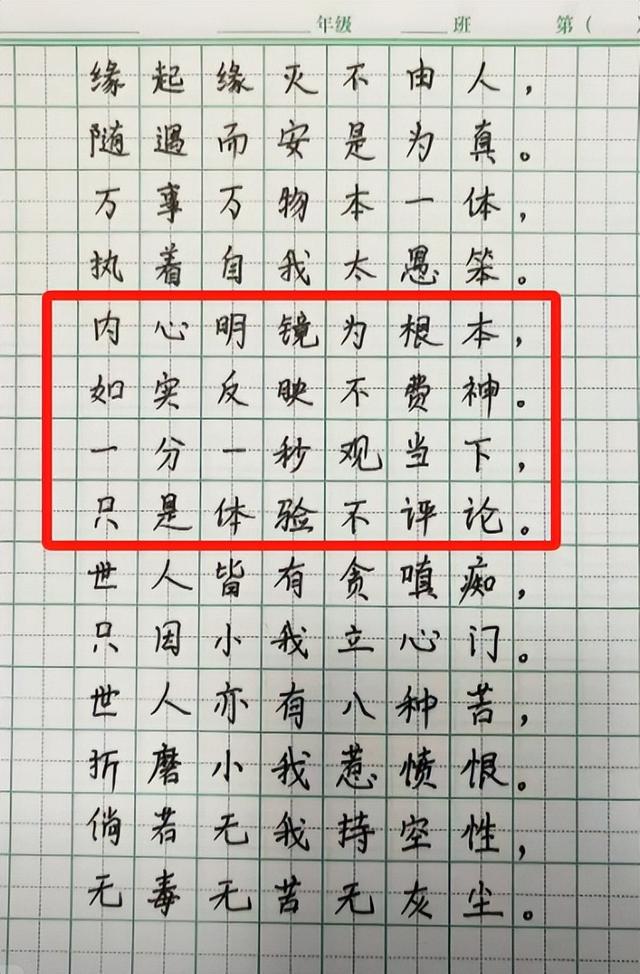 年级 班 第（
缘起缘灭不由人，
随遇而安是为真。
万事万物本一体，
执着自我太愚笨。
内心明镜为根本，
如实反映不费神。
一分一秒观当下，
只是体验不评论。
世人皆有贪嗔痴，
只因小我立心门。
世人亦有八种苦，
折磨小我惹愤恨。
倘若无我持空性，
无毒无苦无灰尘。